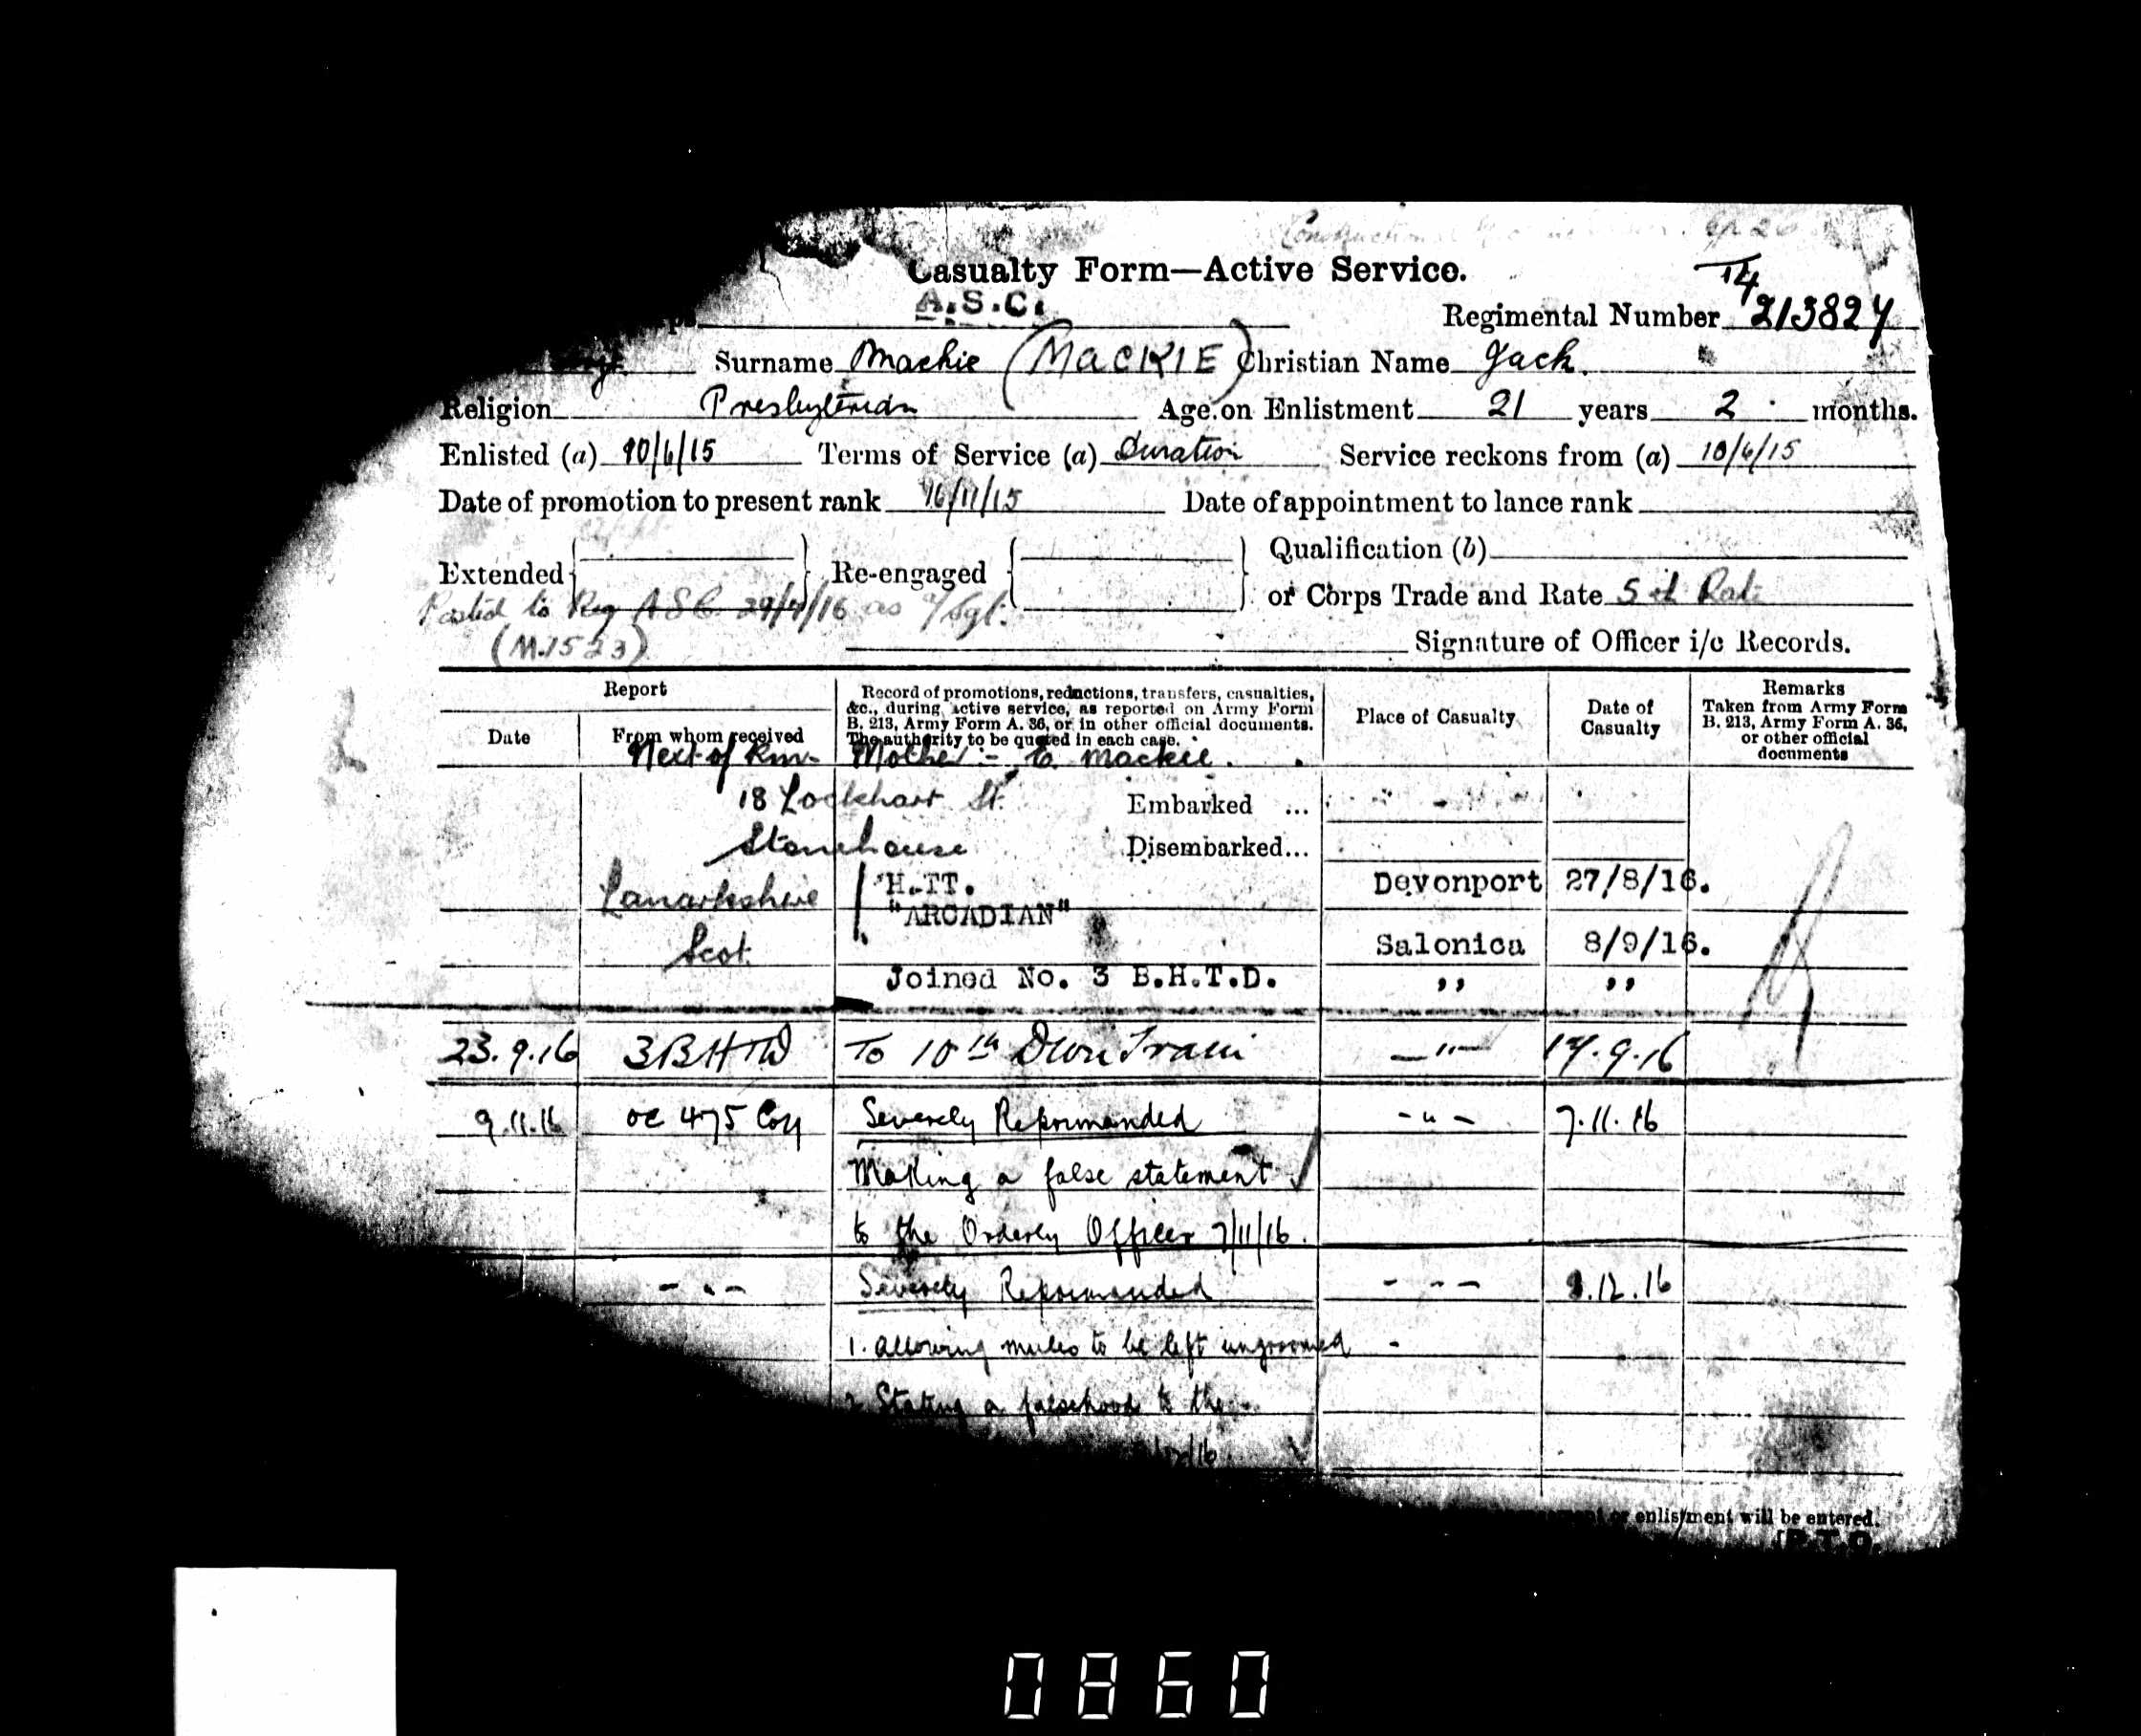 Casualty Form—Active Service.
A.S.C.
T4
Regimental Number 213824
Surname Mackie (MACKIE) Christian Name Jack.
Religion Presbyterian Age on Enlistment 21 years 2 months.
Enlisted (a) 10/6/15 Terms of Service (a) Duration Service reckons from (a) 10/6/15
Date of promotion to present rank 16/11/15 Date of appointment to lance rank
Qualification (b)
Extended Re-engaged
or Corps Trade and Rate Rate
Posted to Reg ASC. 29/7/16 as a/Sgt.
(M.1523) Signature of Officer i/c Records.
Report
Date
From whom received
Record of promotions, reductions, transfers, casualties,
&c., during active service, as reported on Army Form
B. 213, Army Form A. 36, or in other official documents.
The authority to be quoted in each case.
Place of Casualty
Date of
Casualty
Remarks
Taken from Army Form
B. 213, Army Form A. 36,
or other official
documents
Next of Kin- Mother:- E. Mackie.
18 Lockhart St. Embarked ...
Stonehouse Disembarked...
Lanarkshire H.TT. Devonport 27/8/16.
"ARCADIAN"
Scot. Salonica 8/9/16.
Joined No. 3 B.H.T.D. ,, ,,
23.9.16 3BHTD To 10th Divn Train —"— 17.9.16
9.11.16 OC 475 Coy Severely Reprimanded -"- 7.11.16
Making a false statement
to the Orderly Officer 7/11/16.
- " - Severely Reprimanded - " - .12.16
1. Allowing mules to be left ungroomed
2. Stating a falsehood to the
/16.
or enlistment will be entered.
[P.T.O.
0860